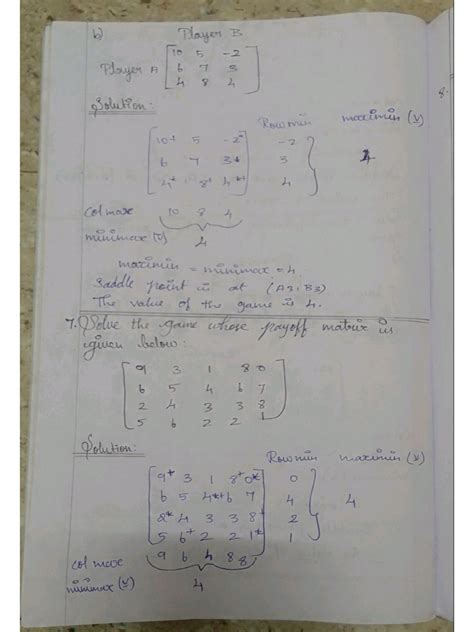 b) Player B
Player A [10 5 -2
6 7 3
4 8 4]
Solution:
Row min maximin (v)
[10+ 5 -2* -2
6 7 3* 3 4
4* 8+ 4*+] 4
col max 10 8 4
minimax (v) 4
maximin = minimax = 4
Saddle point is at (A3, B3)
The value of the game is 4.
7. Solve the game whose payoff matrix is
given below:
[9 3 1 8 0
6 5 4 6 7
2 4 3 3 8
5 6 2 2 1]
Solution:
Row min maximin (v)
[9+ 3 1 8+ 0* 0
6 5 4*+ 6 7 4 4
2* 4 3 3 8+ 2
5 6+ 2 2 1*] 1
col max 9 6 4 8 8
minimax (v) 4